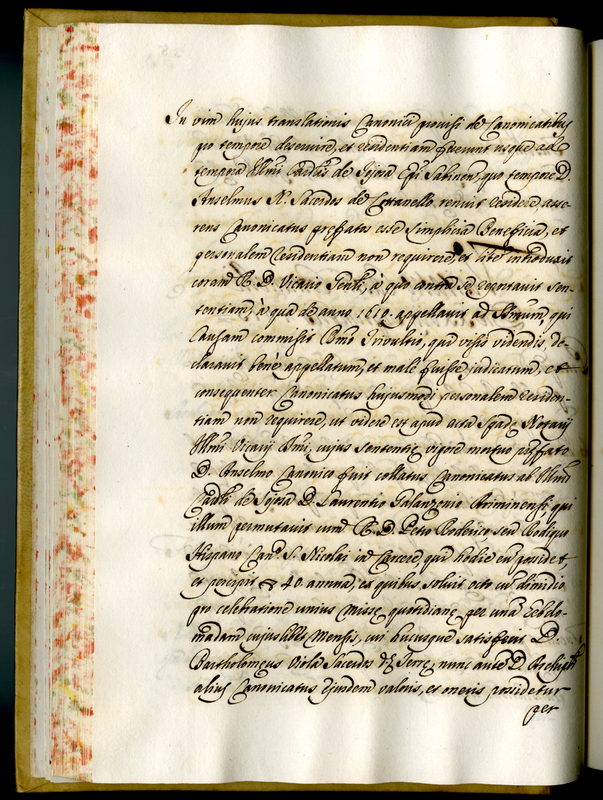 In vim hujus translationis Canonici provisi de Canonicatibus
pro tempore deservire, et residentiam fecerunt usque ad
tempora Illmi Cardlis de Epi Sabinen, quo tempore D.
Anselmus N. Sacerdos de Cottanello renuit residere asse-
rens Canonicatus prefatos esse simplicia Beneficia, et
personalem residentiam non requirere, et litē introduxit
coram R. D. Vicario Genli, à quo contra se reportavit sen-
tentiam, à qua de anno 1610. appellavit ad Smum, qui
Causam commisit Bmo Trivultio, qui visis videndis, de-
claravit benè appellatum, et male fuisse judicatum, et
consequenter Canonicatus hujusmodi personalem residen-
tiam non requirere, ut videre est apud acta Notarij
Illmi Vicarij cujus sententię vigore mortuo prefato
D. Anselmo Canonico fuit collatus Canonicatus ab Illmo
Cardli de D. Laurentio Ariminensi, qui
illum permutavit cum R. D. Petro Roderico, seu Rodiquo
Hispano Can.º S. Nicolai in Carcere, qui hodie eū possidet,
et percipit 40. annua, ex quibus solvit octo cū dimidio
pro celebratione unius Missę quotidianę per unā hebdo-
madam cujuslibet Mensis, cui hucusque satisfecit D.
Bartholomęus Viola Sacerdos nunc autē D.
alius Canonicatus ejusdem valoris, et oneris possidetur
per